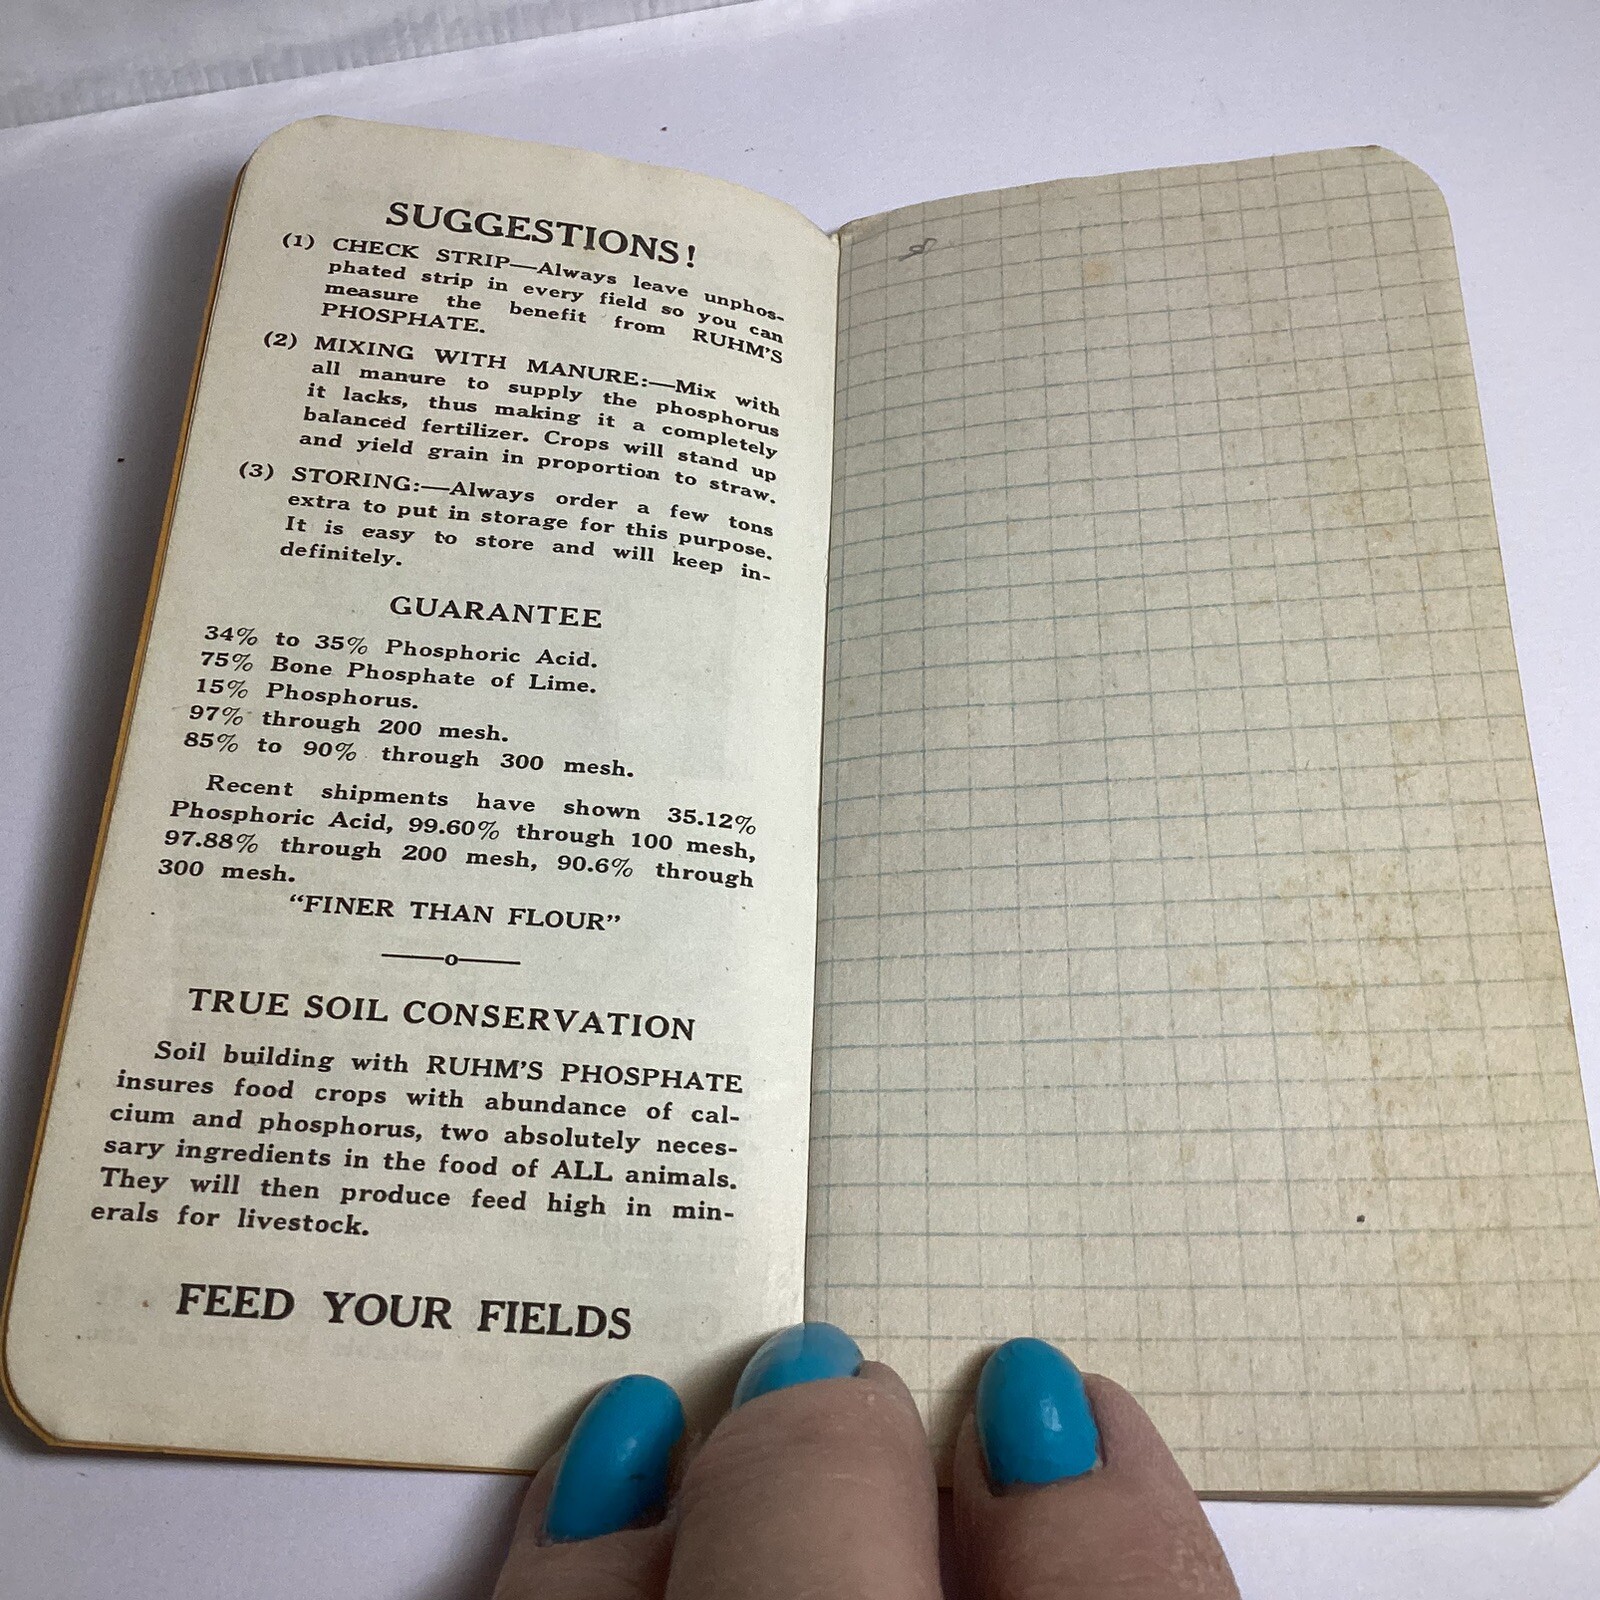 SUGGESTIONS!
(1) CHECK STRIP—Always leave unphos-
phated strip in every field so you can
measure the benefit from RUHM'S
PHOSPHATE.
(2) MIXING WITH MANURE:—Mix with
all manure to supply the phosphorus
it lacks, thus making it a completely
balanced fertilizer. Crops will stand up
and yield grain in proportion to straw.
(3) STORING:—Always order a few tons
extra to put in storage for this purpose.
It is easy to store and will keep in-
definitely.
GUARANTEE
34% to 35% Phosphoric Acid.
75% Bone Phosphate of Lime.
15% Phosphorus.
97% through 200 mesh.
85% to 90% through 300 mesh.
Recent shipments have shown 35.12%
Phosphoric Acid, 99.60% through 100 mesh,
97.88% through 200 mesh, 90.6% through
300 mesh.
"FINER THAN FLOUR"
——o——
TRUE SOIL CONSERVATION
Soil building with RUHM'S PHOSPHATE
insures food crops with abundance of cal-
cium and phosphorus, two absolutely neces-
sary ingredients in the food of ALL animals.
They will then produce feed high in min-
erals for livestock.
FEED YOUR FIELDS